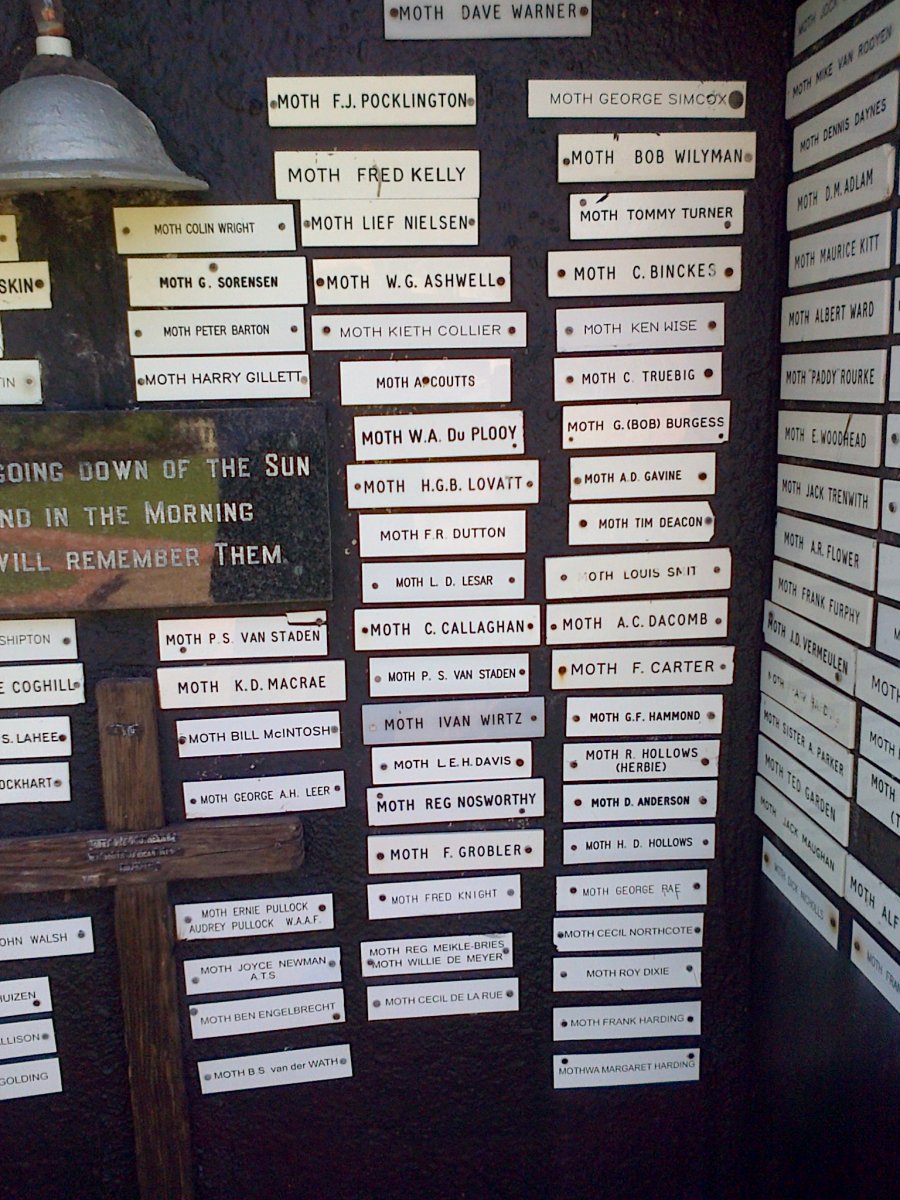 MOTH DAVE WARNER
MOTH F.J. POCKLINGTON
MOTH FRED KELLY
MOTH LIEF NIELSEN
MOTH W.G. ASHWELL
MOTH KIETH COLLIER
MOTH A COUTTS
MOTH W.A. DU PLOOY
MOTH H.G.B. LOVATT
MOTH F.R. DUTTON
MOTH L. D. LESAR
MOTH C. CALLAGHAN
MOTH P. S. VAN STADEN
MOTH IVAN WIRTZ
MOTH L.E.H. DAVIS
MOTH REG NOSWORTHY
MOTH F. GROBLER
MOTH FRED KNIGHT
MOTH REG MEIKLE-BRIES
MOTH WILLIE DE MEYER
MOTH CECIL DE LA RUE
MOTH GEORGE SIMCOX
MOTH BOB WILYMAN
MOTH TOMMY TURNER
MOTH C. BINCKES
MOTH KEN WISE
MOTH C. TRUEBIG
MOTH G.(BOB) BURGESS
MOTH A.D. GAVINE
MOTH TIM DEACON
MOTH LOUIS SMIT
MOTH A.C. DACOMB
MOTH F. CARTER
MOTH G.F. HAMMOND
MOTH R. HOLLOWS
(HERBIE)
MOTH D. ANDERSON
MOTH H. D. HOLLOWS
MOTH GEORGE RAE
MOTH CECIL NORTHCOTE
MOTH ROY DIXIE
MOTH FRANK HARDING
MOTHWA MARGARET HARDING
MOTH COLIN WRIGHT
MOTH G. SORENSEN
MOTH PETER BARTON
MOTH HARRY GILLETT
GOING DOWN OF THE SUN
ND IN THE MORNING
WILL REMEMBER THEM
MOTH P.S. VAN STADEN
MOTH K.D. MACRAE
MOTH BILL McINTOSH
MOTH GEORGE A.H. LEER
MOTH ERNIE PULLOCK
AUDREY PULLOCK W.A.A.F.
MOTH JOYCE NEWMAN
A.T.S.
MOTH BEN ENGELBRECHT
MOTH B.S. van der WATH
SKIN
TIN
SHIPTON
E COGHILL
S. LAHEE
OCKHART
OHN WALSH
HUIZEN
LLISON
GOLDING
MOTH JOCK
MOTH MIKE VAN ROOYEN
MOTH DENNIS DAYNES
MOTH D.M. ADLAM
MOTH MAURICE KITT
MOTH ALBERT WARD
MOTH "PADDY" ROURKE
MOTH E. WOODHEAD
MOTH JACK TRENWITH
MOTH A.R. FLOWER
MOTH FRANK FURPHY
MOTH J.D. VERMEULEN
MOTH
MOTH SISTER A. PARKER
MOTH TED GARDEN
MOTH JACK MAUGHAN
MOTH DICK NICHOLLS
MOTH
MOTH
MOTH
(T
MOTH ALF
MOTH FRAN